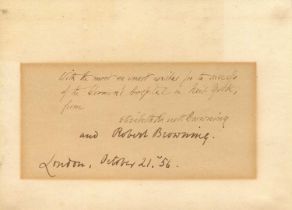 With the most earnest wishes for the success
of the German hospital in New York,
from
Elizabeth Barrett Browning
and Robert Browning.
London, October 21. 56.